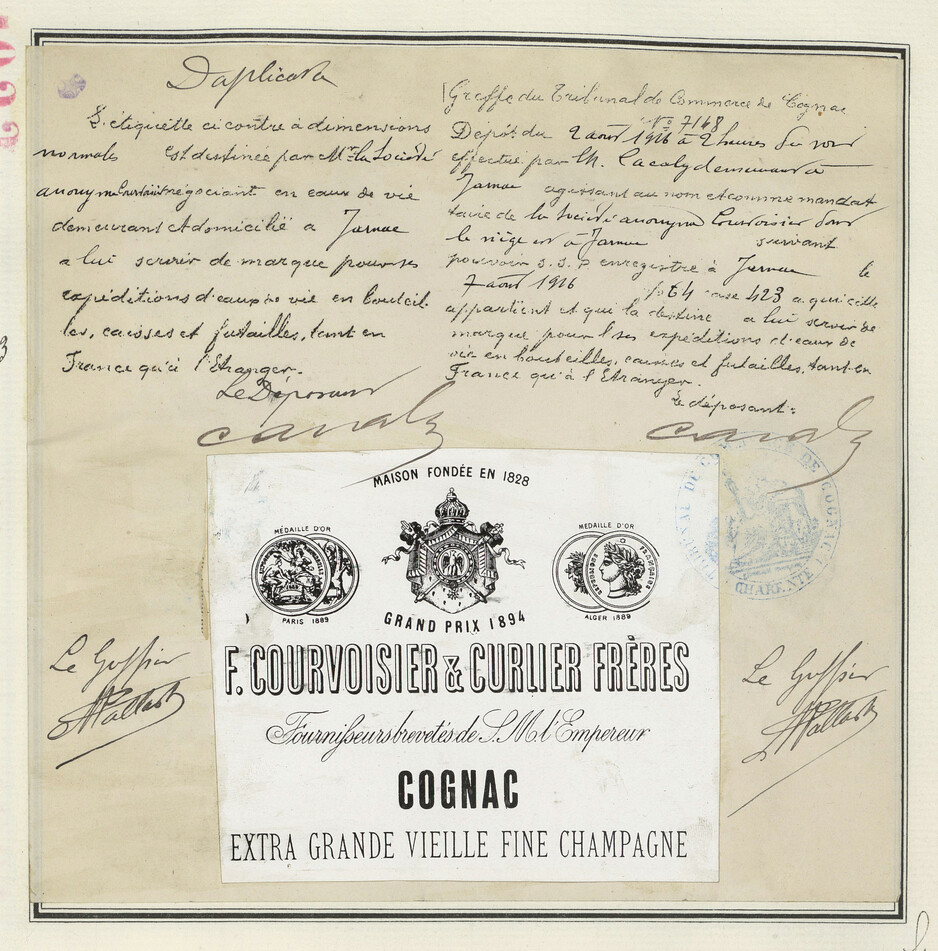 Duplicata
L'étiquette ci contre à dimensions
normales est destinée par Mr la Société
anonyme Courvoisier négociant en eaux de vie
demeurant et domicilié à Jarnac
a lui servir de marque pour ses
expéditions d'eaux de vie en bouteil
les, caisses et futailles, tant en
France qu'à l'Etranger.
Le Déposant
Greffe du Tribunal de Commerce de Cognac
No 7148
Dépôt du 2 aout 1916 à 2 heures du soir
effectué par M. demeurant à
Jarnac agissant au nom et comme mandat
taire de la Société anonyme Courvoisier dont
le siège est à Jarnac suivant
pouvoir s.s.p enregistré à Jarnac le
7 aout 1916 fo 64 case 423 a qui cette
appartient et qui la destine a lui servir de
marque pour ses expéditions d'eaux de
vie en bouteilles, caisses et futailles, tant en
France qu'à l'Etranger.
Le déposant:
MAISON FONDÉE EN 1828
MÉDAILLE D'OR
PARIS 1889
GRAND PRIX 1894
MEDAILLE D'OR
REPUBLIQUE FRANÇAISE
ALGER 1889
F. COURVOISIER & CURLIER FRÈRES
Fournisseurs brevetés de S. M. l'Empereur
COGNAC
EXTRA GRANDE VIEILLE FINE CHAMPAGNE
Le Greffier
Le Greffier
TRIBUNAL DE COMMERCE DE COGNAC
CHARENTE